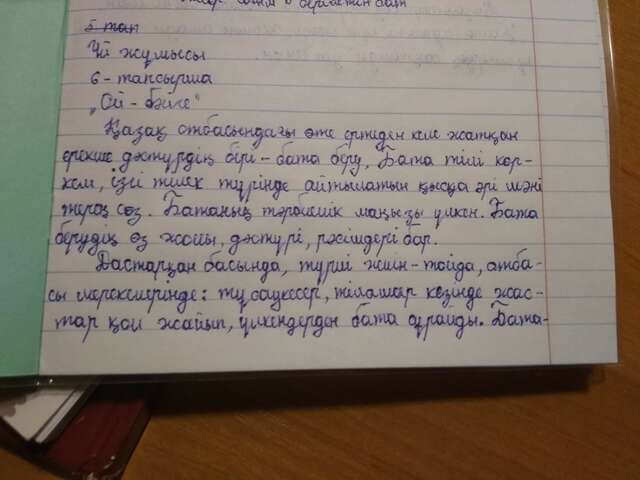 5-топ
Үй жұмысы
6-тапсырма
„Ой-бөліс"
Қазақ отбасындағы өте ертеден келе жатқан
ерекше дәстүрдің бірі - бата беру. Бата тілі көр-
кем, ізгі тілек түрінде айтылатын қысқа әрі мәні
терең сөз. Батаның тәрбиелік маңызы үлкен. Бата
берудің өз жолы, дәстүрі, рәсімдері бар.
Дастарқан басында, түрлі жиін-тойда, отба-
сы мерекелерінде: тұсаукесер, тілашар кезінде жас-
тар қол жайып, үлкендерден бата сұрайды. Бата-